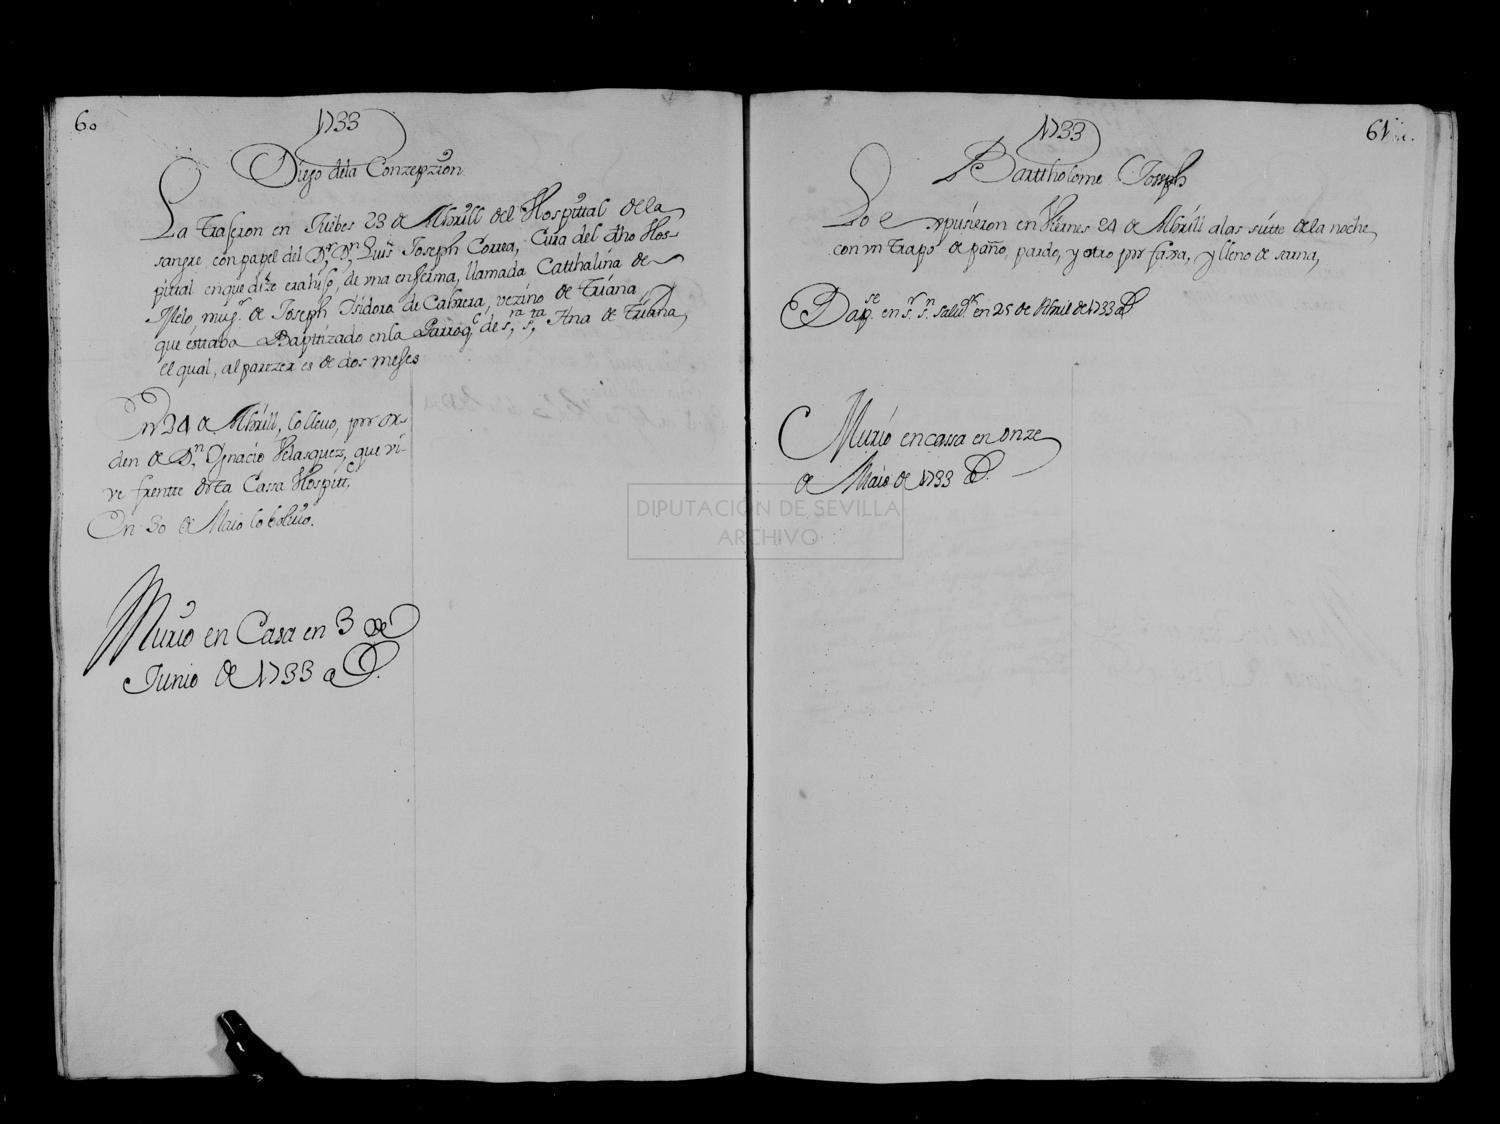 60
1733
Diego dela Conzepzion
La trageron en Juebes 23 de Abrill del Hospittal de la
sangre con papel del Dr. Dn. Luis Joseph Correa, Cura del dho Hos-
pittal en que dize era hijo, de vna enferma, llamada Catthalina de
Melo, mugr. de Joseph Isidoro de Cabrera, vezino de Triana,
que estaba Baptizado en la Parroq. de sra. sta. Ana de Triana,
el qual, al parezer es de dos meses
En 24 de Abrill, lo lleuo, por or-
den de Dn. Ygnacio Velasquez, que vi-
ve frentte desta Cassa Hospitt.
En 30 de Maio lo boluio.
Murio en Casa en 3 de
Junio de 1733 a
61
1733
Barttholome Joseph
Lo expusieron en Viernes 24 de Abrill a las siette de la noche,
con vn Trapo de paño, pardo, y otro por faxa, y lleno de sarna,
Bapse. en Sr. Sn. Saludr. en 25 de Abril de 1733
Murio en cassa en onze
de Maio de 1733
DIPUTACIÓN DE SEVILLA
ARCHIVO